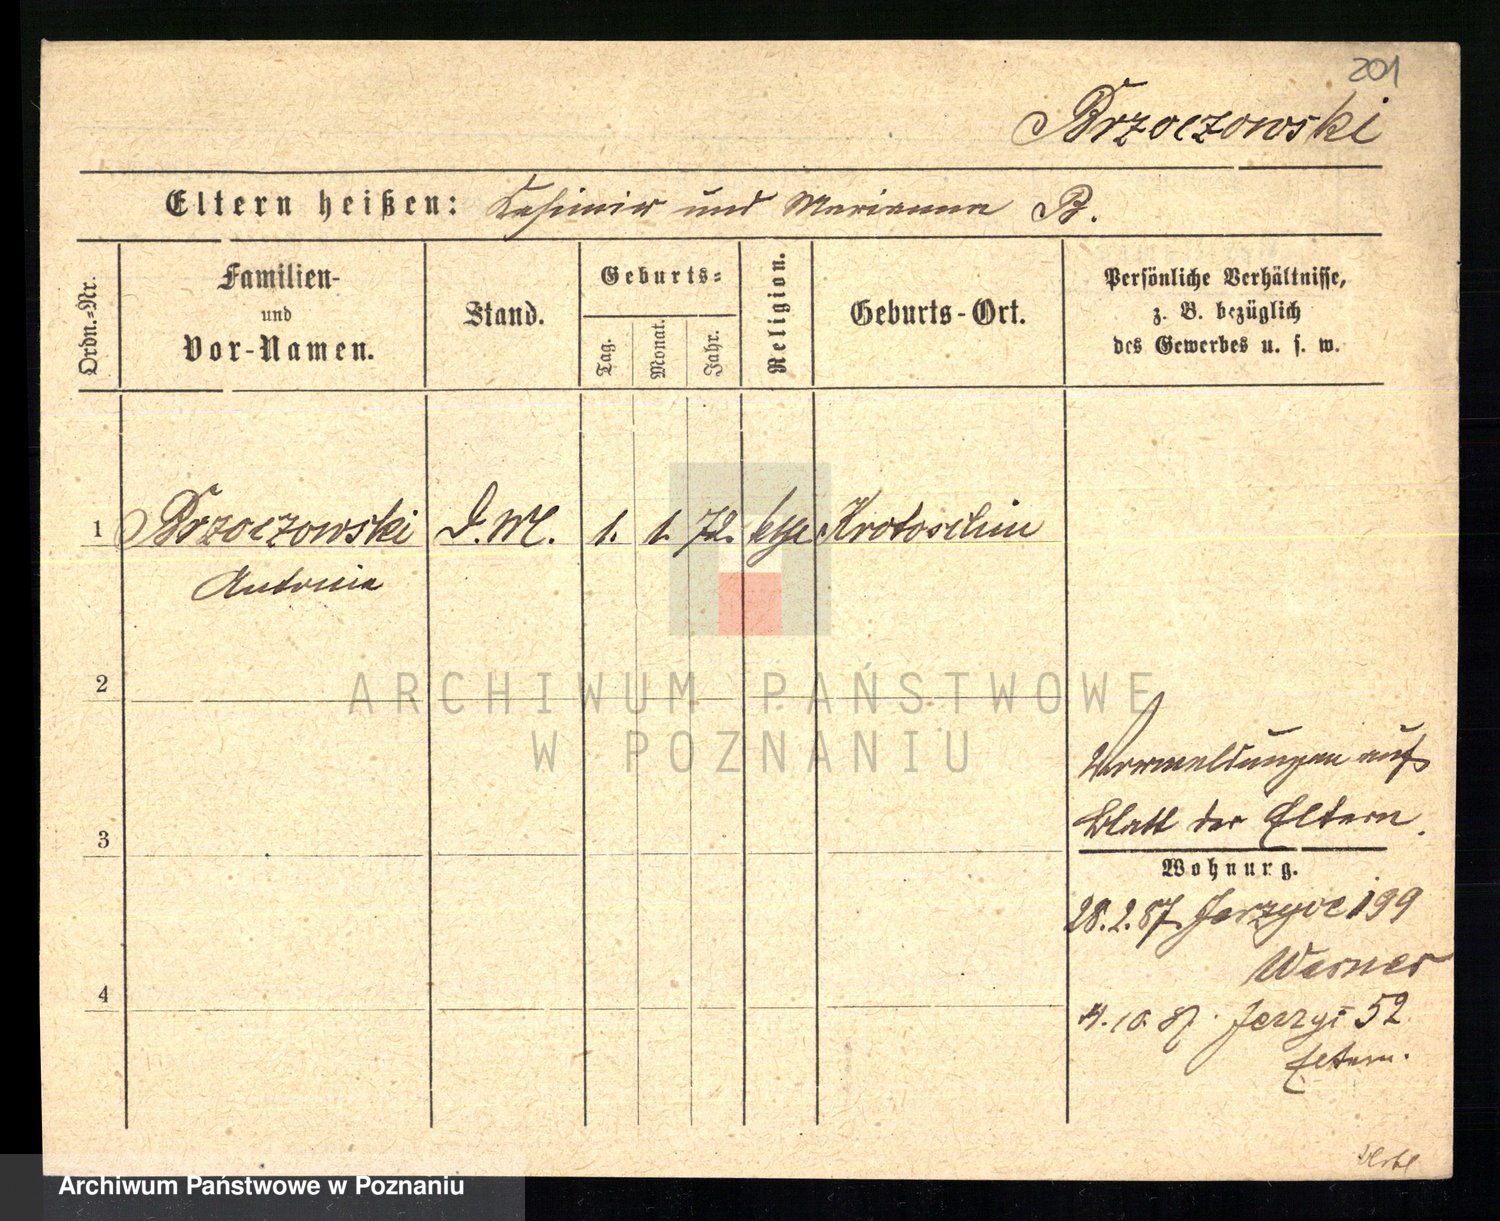 201
Brzoczowski
Eltern heißen: Kasimir und Marianna B.
Ordn.-Nr.
Familien-
und
Vor-Namen.
Stand.
Geburts-
Tag.
Monat.
Jahr.
Religion.
Geburts-Ort.
Persönliche Verhältnisse,
z. B. bezüglich
des Gewerbes u. s. w.
1 Brzoczowski D. M. 1. 1. 72. Krotoschin
Antonie
2
ARCHIWUM PAŃSTWOWE
W POZNANIU
Vermeldungen auf
Blatt der Eltern.
3
Wohnung.
28.2.87. Jerzyce 199
Werner
4
4.10.87. Jerzyc 52
Eltern.
Archiwum Państwowe w Poznaniu